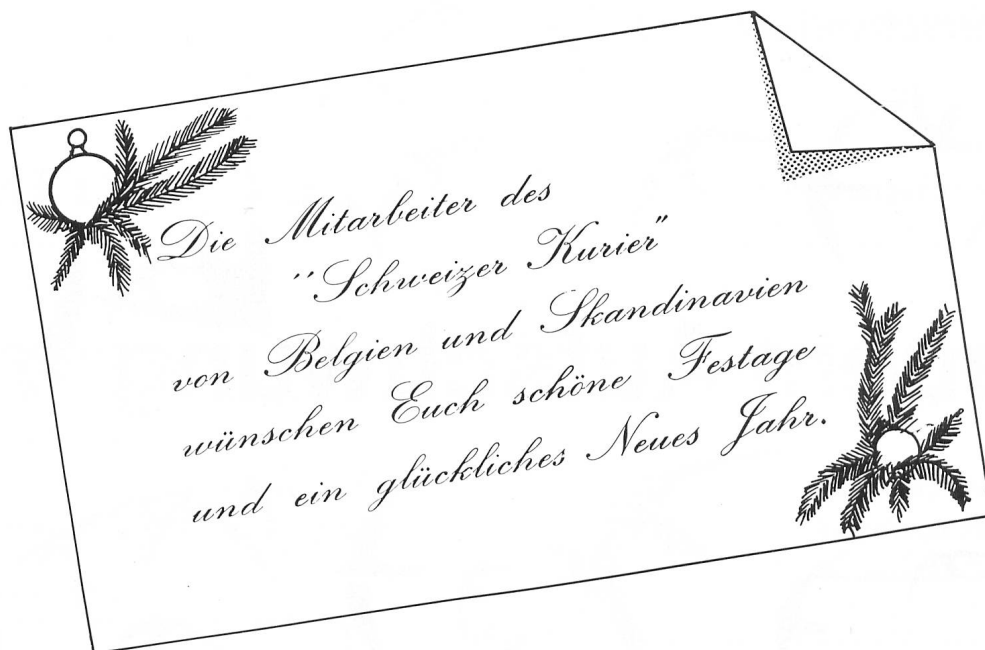 Die Mitarbeiter des
"Schweizer Kurier"
von Belgien und Skandinavien
wünschen Euch schöne Festage
und ein glückliches Neues Jahr.